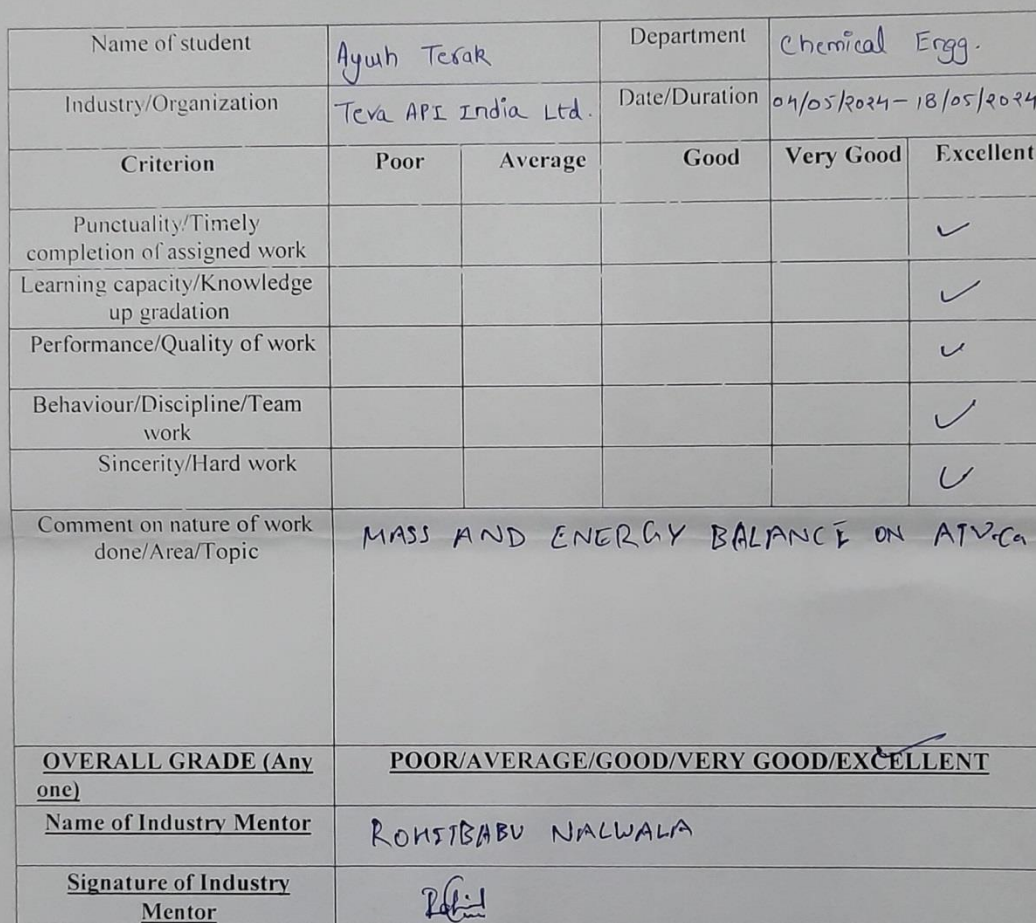 Name of student Ayush Terak Department Chemical Engg.
Industry/Organization Teva API India Ltd. Date/Duration 04/05/2024 - 18/05/2024
Criterion Poor Average Good Very Good Excellent
Punctuality/Timely
completion of assigned work ✓
Learning capacity/Knowledge
up gradation ✓
Performance/Quality of work ✓
Behaviour/Discipline/Team
work ✓
Sincerity/Hard work ✓
Comment on nature of work
done/Area/Topic
MASS AND ENERGY BALANCE ON ATV-Ca
OVERALL GRADE (Any
one)
POOR/AVERAGE/GOOD/VERY GOOD/EXCELLENT
Name of Industry Mentor ROHITBABU NALWALA
Signature of Industry
Mentor